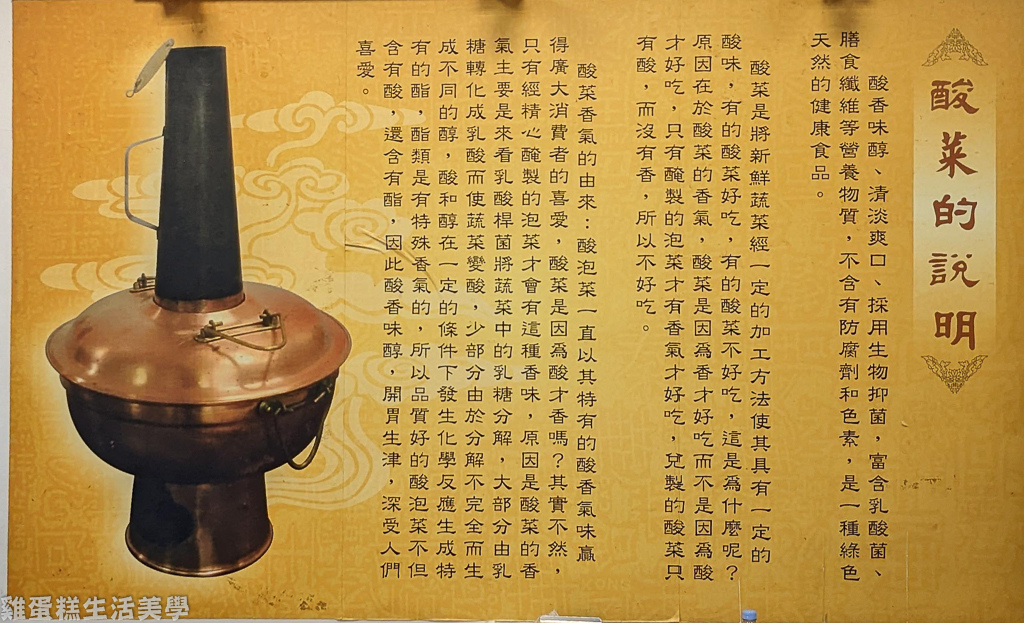 酸菜的說明
酸香味醇、清淡爽口、採用生物抑菌，富含乳酸菌、
膳食纖維等營養物質，不含有防腐劑和色素，是一種綠色
天然的健康食品。
酸菜是將新鮮蔬菜經一定的加工方法使其具有一定的
酸味，有的酸菜好吃，有的酸菜不好吃，這是為什麼呢？
原因在於酸菜的香氣，酸菜是因為香才好吃而不是因為酸
才好吃，只有醃製的泡菜才有香氣才好吃，兌製的酸菜只
有酸，而沒有香，所以不好吃。
酸菜香氣的由來：酸泡菜一直以其特有的酸香氣味贏
得廣大消費者的喜愛，酸菜是因為酸才香嗎？其實不然，
只有經精心醃製的泡菜才會有這種香味，原因是酸菜的香
氣主要是來看乳酸桿菌將蔬菜中的乳糖分解，大部分由乳
糖轉化成乳酸而使蔬菜變酸，少部分由於分解不完全而生
成不同的醇，酸和醇在一定的條件下發生化學反應生成特
有的酯，酯類是有特殊香氣的，所以品質好的酸泡菜不但
含有酸，還含有酯，因此酸香味醇，開胃生津，深受人們
喜愛。
雞蛋糕生活美學